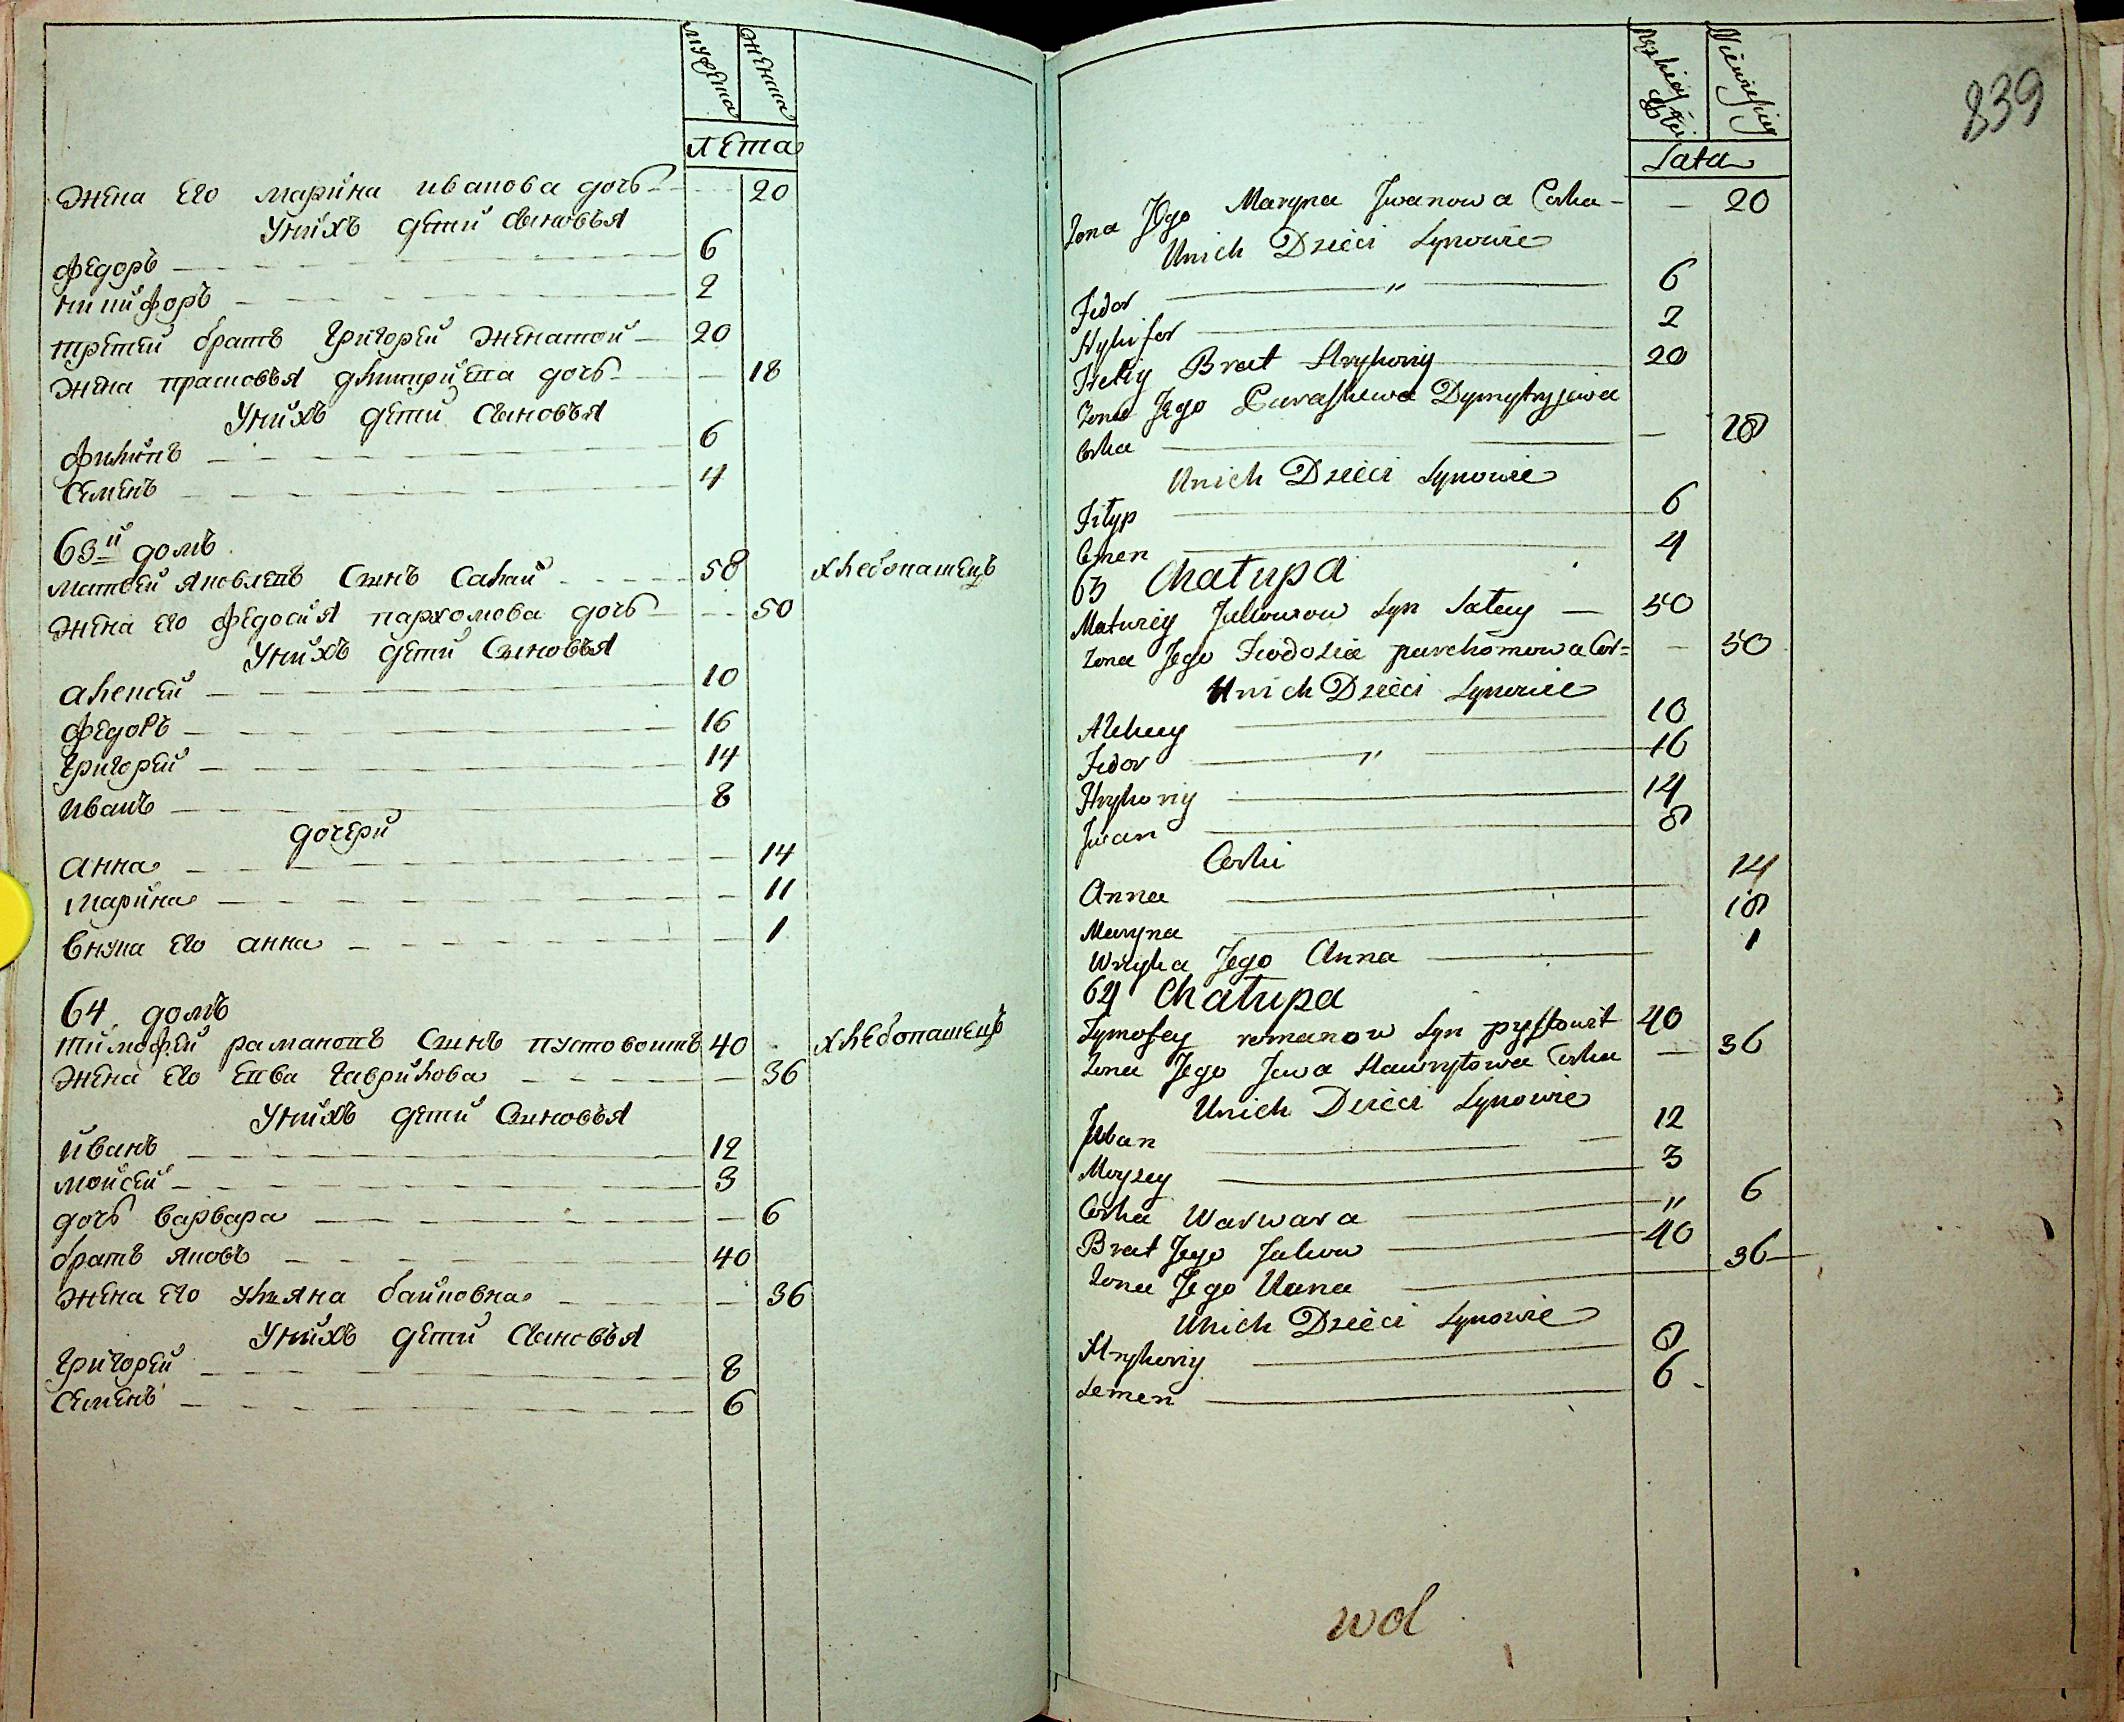 мужеска
женска
лета
жена его марина иванова дочь 20
У них дети сыновья
федоръ 6
никифоръ 2
третей братъ григорей женатой 20
жена прасковья дмитриева дочь 18
У нихъ дети сыновья
филипъ 6
семенъ 4
63й домъ
матвей яковлевъ сынъ салай 58 хлебопашецъ
жена его федосия пархомова дочь 50
У нихъ дети сыновья
алексей 10
федоръ 16
григорей 14
иванъ 8
дочери
анна 14
марина 11
внука его анна 1
64 домъ
тимофей романовъ сынъ пустовоитъ 40 хлебопашецъ
жена его евва гаврилова 36
У нихъ дети сыновья
иванъ 12
моисей 3
дочь варвара 6
братъ яковъ 40
жена его ульяна 36
У нихъ дети сыновья
григорей 8
семенъ 6
839
Lata
Zona Jego Maryna Jwanowa Corka 20
Unich Dzieci Synowie
Fedor 6
Nykifor 2
Tretiy Brat Hryhoriy 20
Zona Jego Paraskewa Dymytryjewa
Corka 18
Unich Dzieci Synowie
Filyp 6
Semen 4
63 Chałupa
Matwiey Jakowow Syn Sałay 50
Zona Jego Feodosia parchomowa Cor= 50
Unich Dzieci Synowie
Alexey 10
Fedor 16
Hryhoriy 14
Jwan 8
Corki
Anna 14
Maryna 18
Wnuka Jego Anna 1
64 Chałupa
Tymofey romanow Syn pystowit 40
Zona Jego Jewa Hawryłowa Corka 36
Unich Dzieci Synowie
Jwan 12
Moyzey 3
Corka Warwara 6
Brat Jego Jakow 40
Zona Jego Uana 36
Unich Dzieci Synowie
Hryhoriy 8
Semen 6
wol